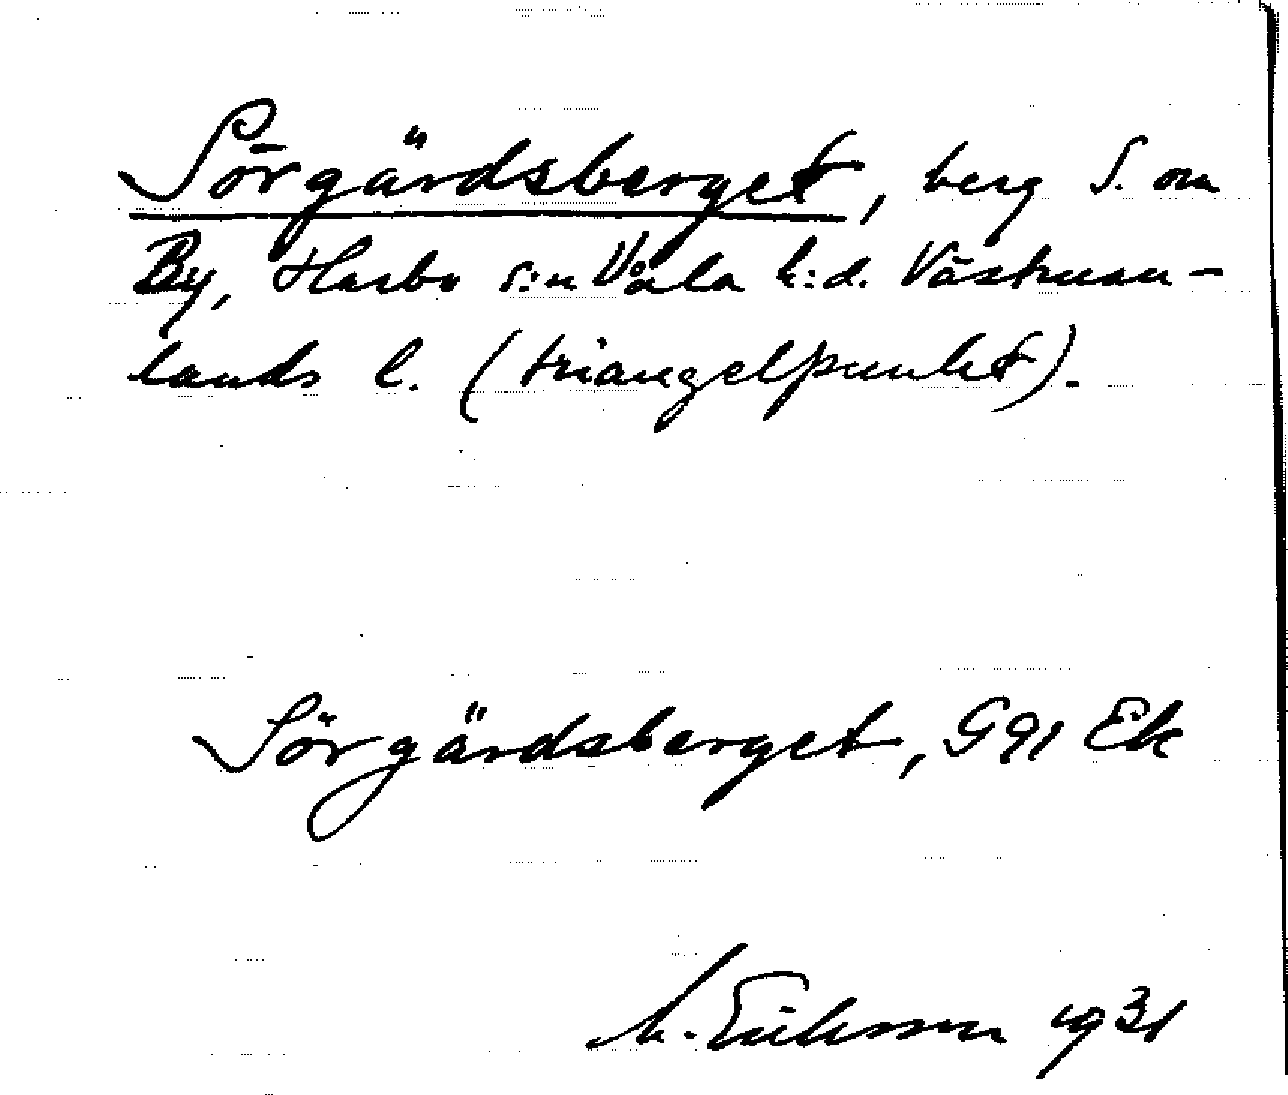 Sörgärdsberget, berg S. om
By, Harbo s:n Våla h:d. Västman-
lands l. (triangelpunkt).
Sörgärdsberget, G91 Ek
M. Eriksson 1931